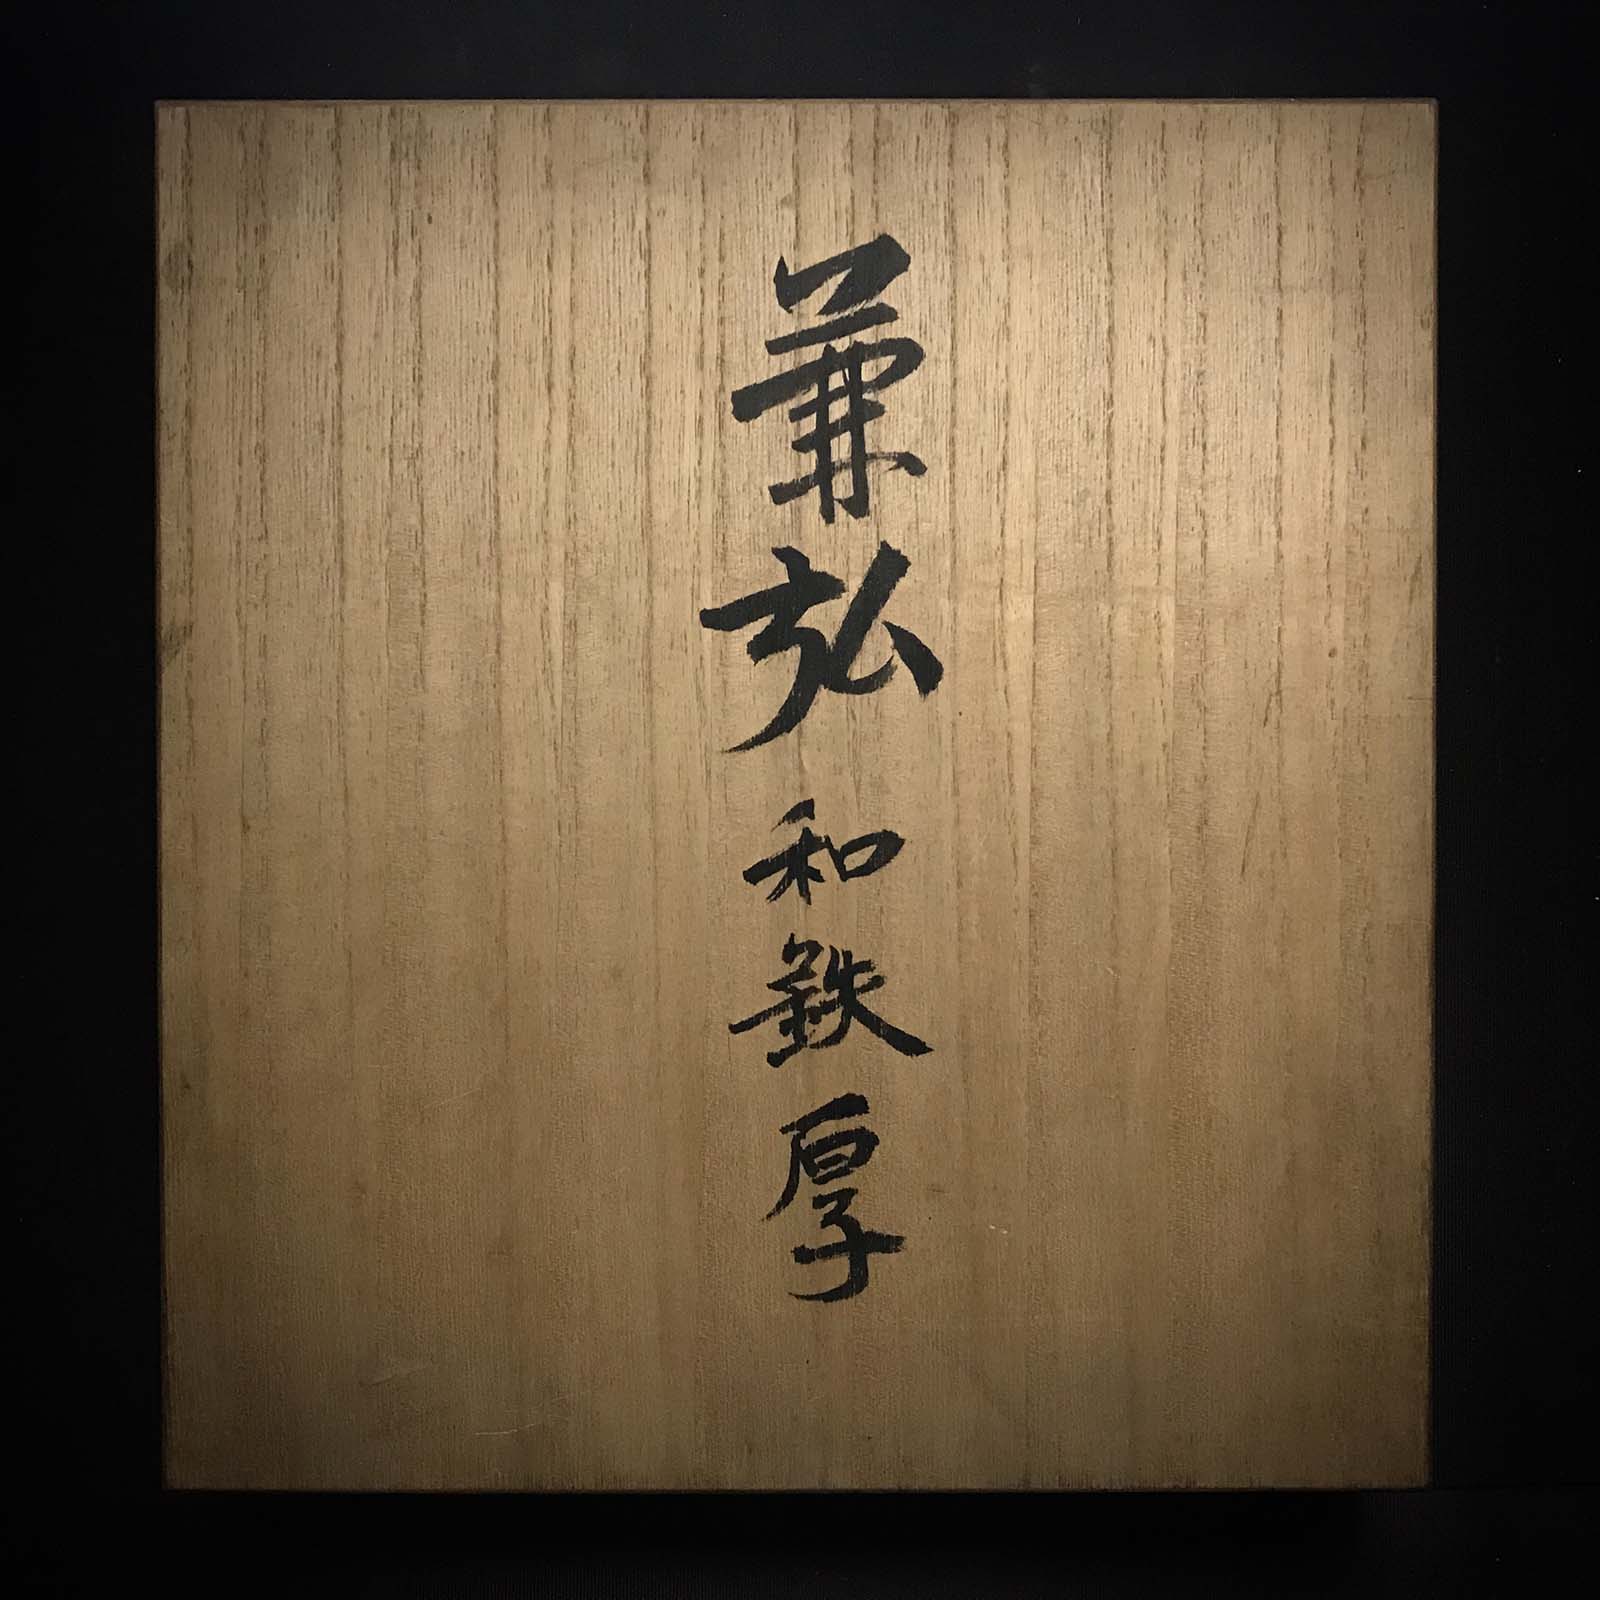 兼弘和鉄厚